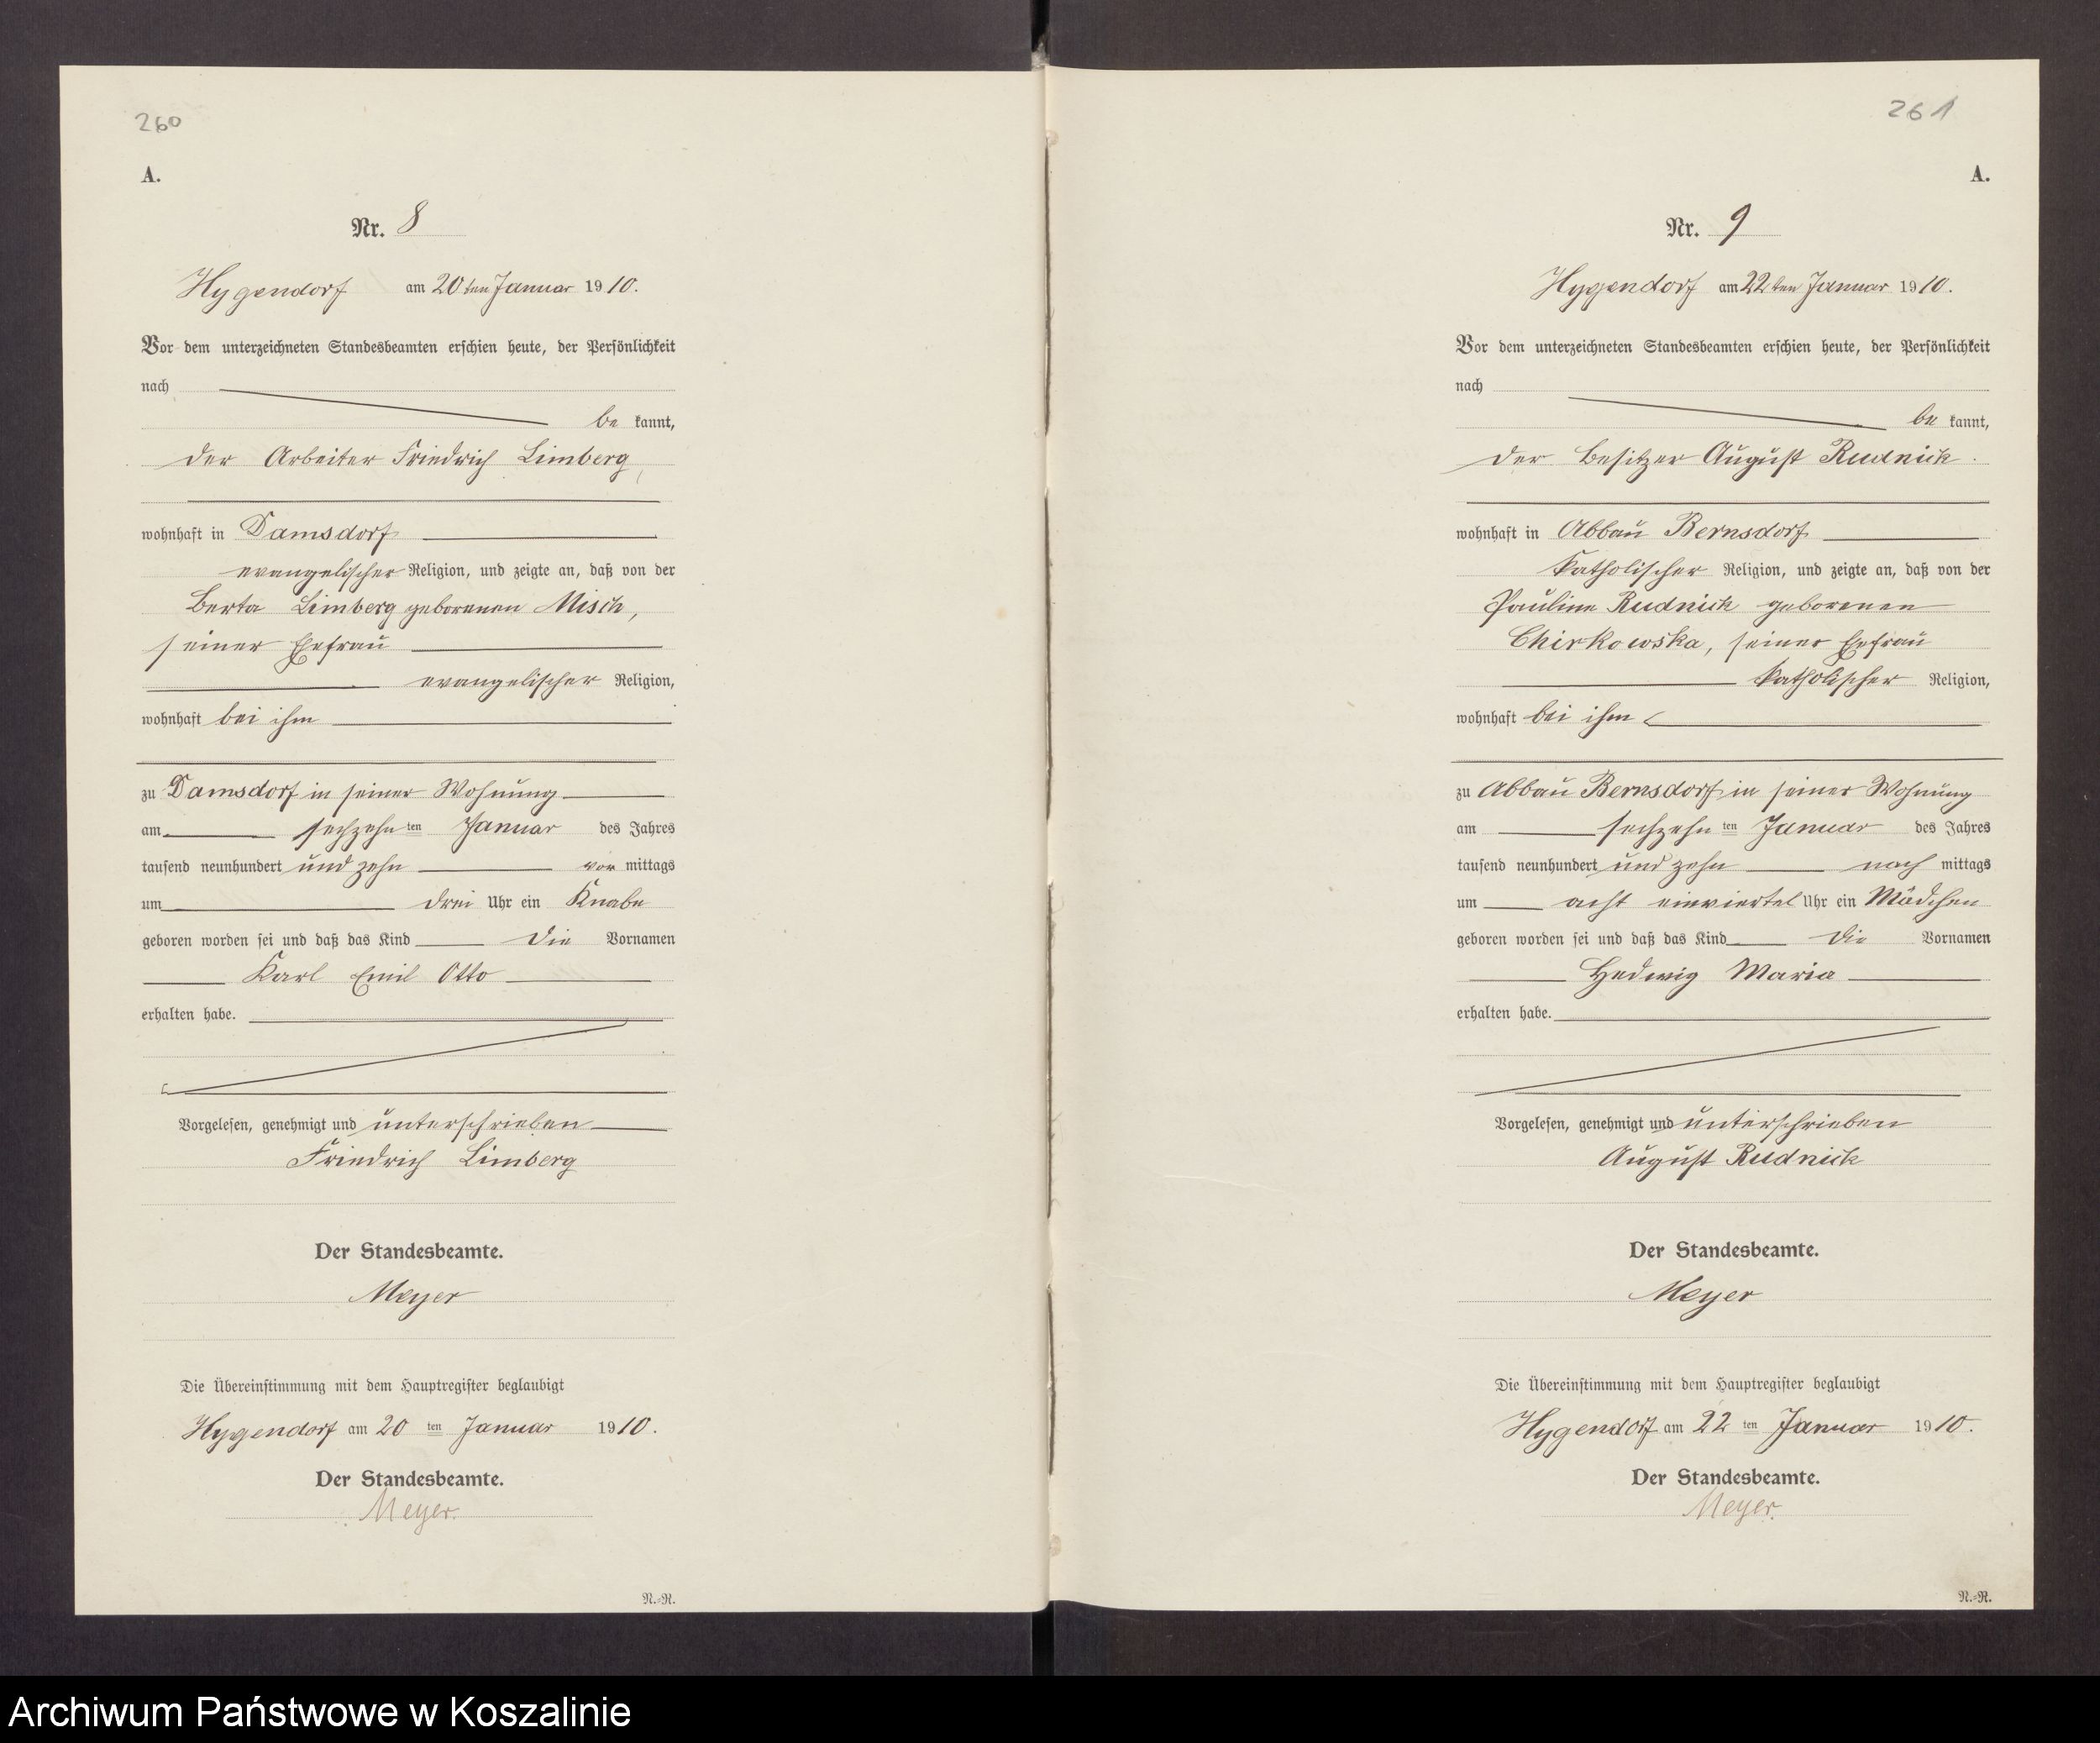 260
A.
Nr. 8
Hygendorf am 20ten Januar 1910.
Vor dem unterzeichneten Standesbeamten erschien heute, der Persönlichkeit
nach
be kannt,
der Arbeiter Friedrich Limberg,
wohnhaft in Damsdorf
evangelischer Religion, und zeigte an, daß von der
Berta Limberg geborenen Misch,
seiner Ehefrau
evangelischer Religion,
wohnhaft bei ihm
zu Damsdorf in seiner Wohnung
am sechzehn ten Januar des Jahres
tausend neunhundert und zehn vor mittags
um drei Uhr ein Knabe
geboren worden sei und daß das Kind die Vornamen
Karl Emil Otto
erhalten habe.
Vorgelesen, genehmigt und unterschrieben
Friedrich Limberg
Der Standesbeamte.
Meyer
Die Übereinstimmung mit dem Hauptregister beglaubigt
Hygendorf am 20 ten Januar 1910.
Der Standesbeamte.
Meyer.
N.=R.
261
A.
Nr. 9
Hygendorf am 22ten Januar 1910.
Vor dem unterzeichneten Standesbeamten erschien heute, der Persönlichkeit
nach
be kannt,
der Besitzer August Rudnick.
wohnhaft in Abbau Bernsdorf
katholischer Religion, und zeigte an, daß von der
Pauline Rudnick geborenen
Chirkowska, seiner Ehefrau
katholischer Religion,
wohnhaft bei ihm
zu Abbau Bernsdorf in seiner Wohnung
am sechzehn ten Januar des Jahres
tausend neunhundert und zehn nach mittags
um acht einviertel Uhr ein Mädchen
geboren worden sei und daß das Kind die Vornamen
Hedwig Maria
erhalten habe.
Vorgelesen, genehmigt und unterschrieben
August Rudnick
Der Standesbeamte.
Meyer
Die Übereinstimmung mit dem Hauptregister beglaubigt
Hygendorf am 22 ten Januar 1910.
Der Standesbeamte.
Meyer.
N.=R.
Archiwum Państwowe w Koszalinie